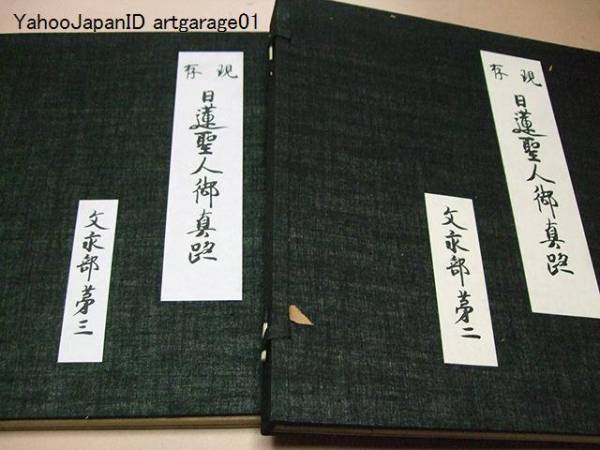 YahooJapanID artgarage01
現存
日蓮聖人御真蹟
文永部第二
現存
日蓮聖人御真蹟
文永部第三